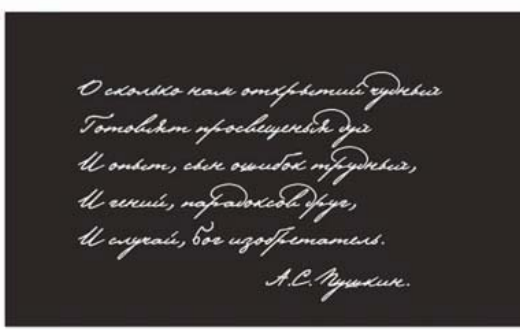 О сколько нам открытий чудных
Готовят просвещенья дух
И опыт, сын ошибок трудных,
И гений, парадоксов друг,
И случай, Бог изобретатель.
А.С. Пушкин.